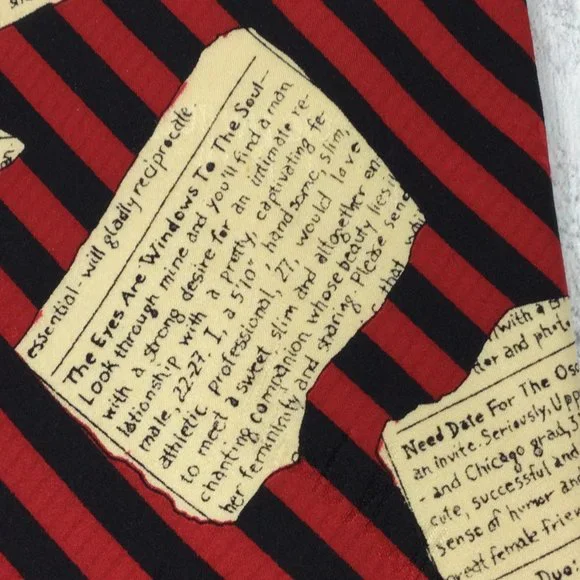 essential - will gladly reciprocate
The Eyes Are Windows To The Soul-
Look through mine and you'll find a man
with a strong desire for an intimate re-
lationship with a pretty, captivating fe
male, 22-27. I, a 5'10" handsome, slim,
athletic professional, 27, would love
to meet a sweet slim and altogether en
chanting companion whose beauty lies
her femininity and sharing. Please send
that
with a
and photo
Need Date For The Osc
an invite. Seriously, Upp
- and Chicago grad, 5
cute, successful and
sense of humor and
great female frie
Duo: